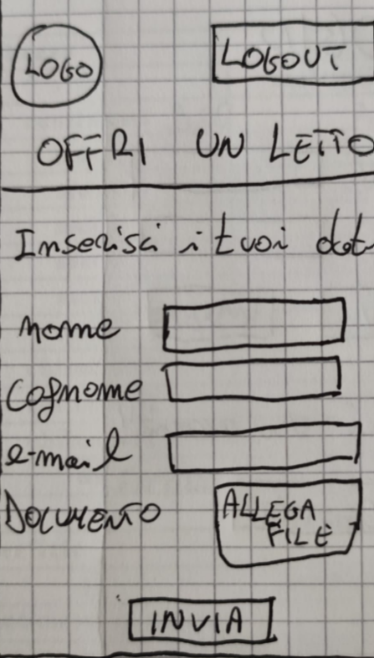 LOGO
LOGOUT
OFFRI UN LETTO
Inserisci i tuoi dat
nome
Cognome
e-mail
DOCUMENTO
ALLEGA
FILE
INVIA